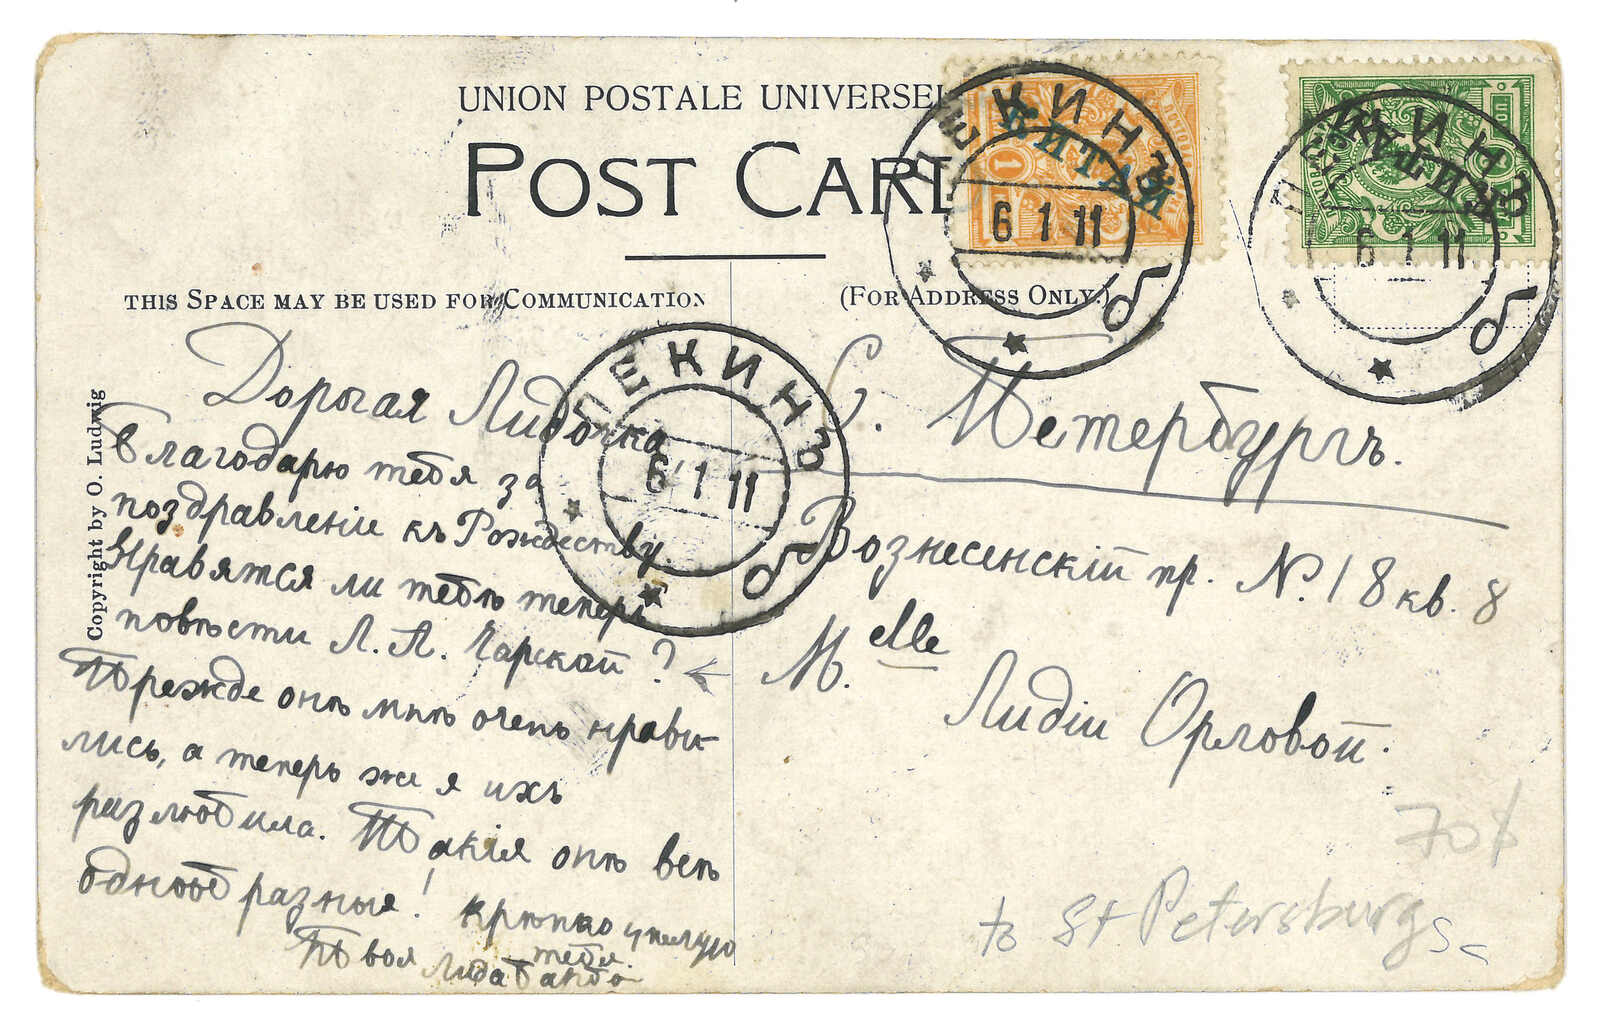 UNION POSTALE UNIVERSEL
POST CARD
THIS SPACE MAY BE USED FOR COMMUNICATION
(FOR ADDRESS ONLY.)
КИТАЙ
КИТАЙ
ПЕКИНЪ
6 1 11
б
ПЕКИНЪ
6 1 11
б
ПЕКИНЪ
6 1 11
б
Copyright by O. Ludwig
Дорогая Лидочка
Благодарю тебя за
поздравленіе къ Рождеству.
Нравятся ли тебѣ теперь
повѣсти Л. А. Чарской?
Прежде онѣ мнѣ очень нрави
лись, а теперь же я ихъ
разлюбила. Такія онѣ всѣ
однообразныя! Крѣпко цѣлую
тебя.
Твоя Лида
С. Петербургъ.
Вознесенскій пр. №. 18 кв. 8
M.elle
Лидіи Орловой.
70
to St Petersburg